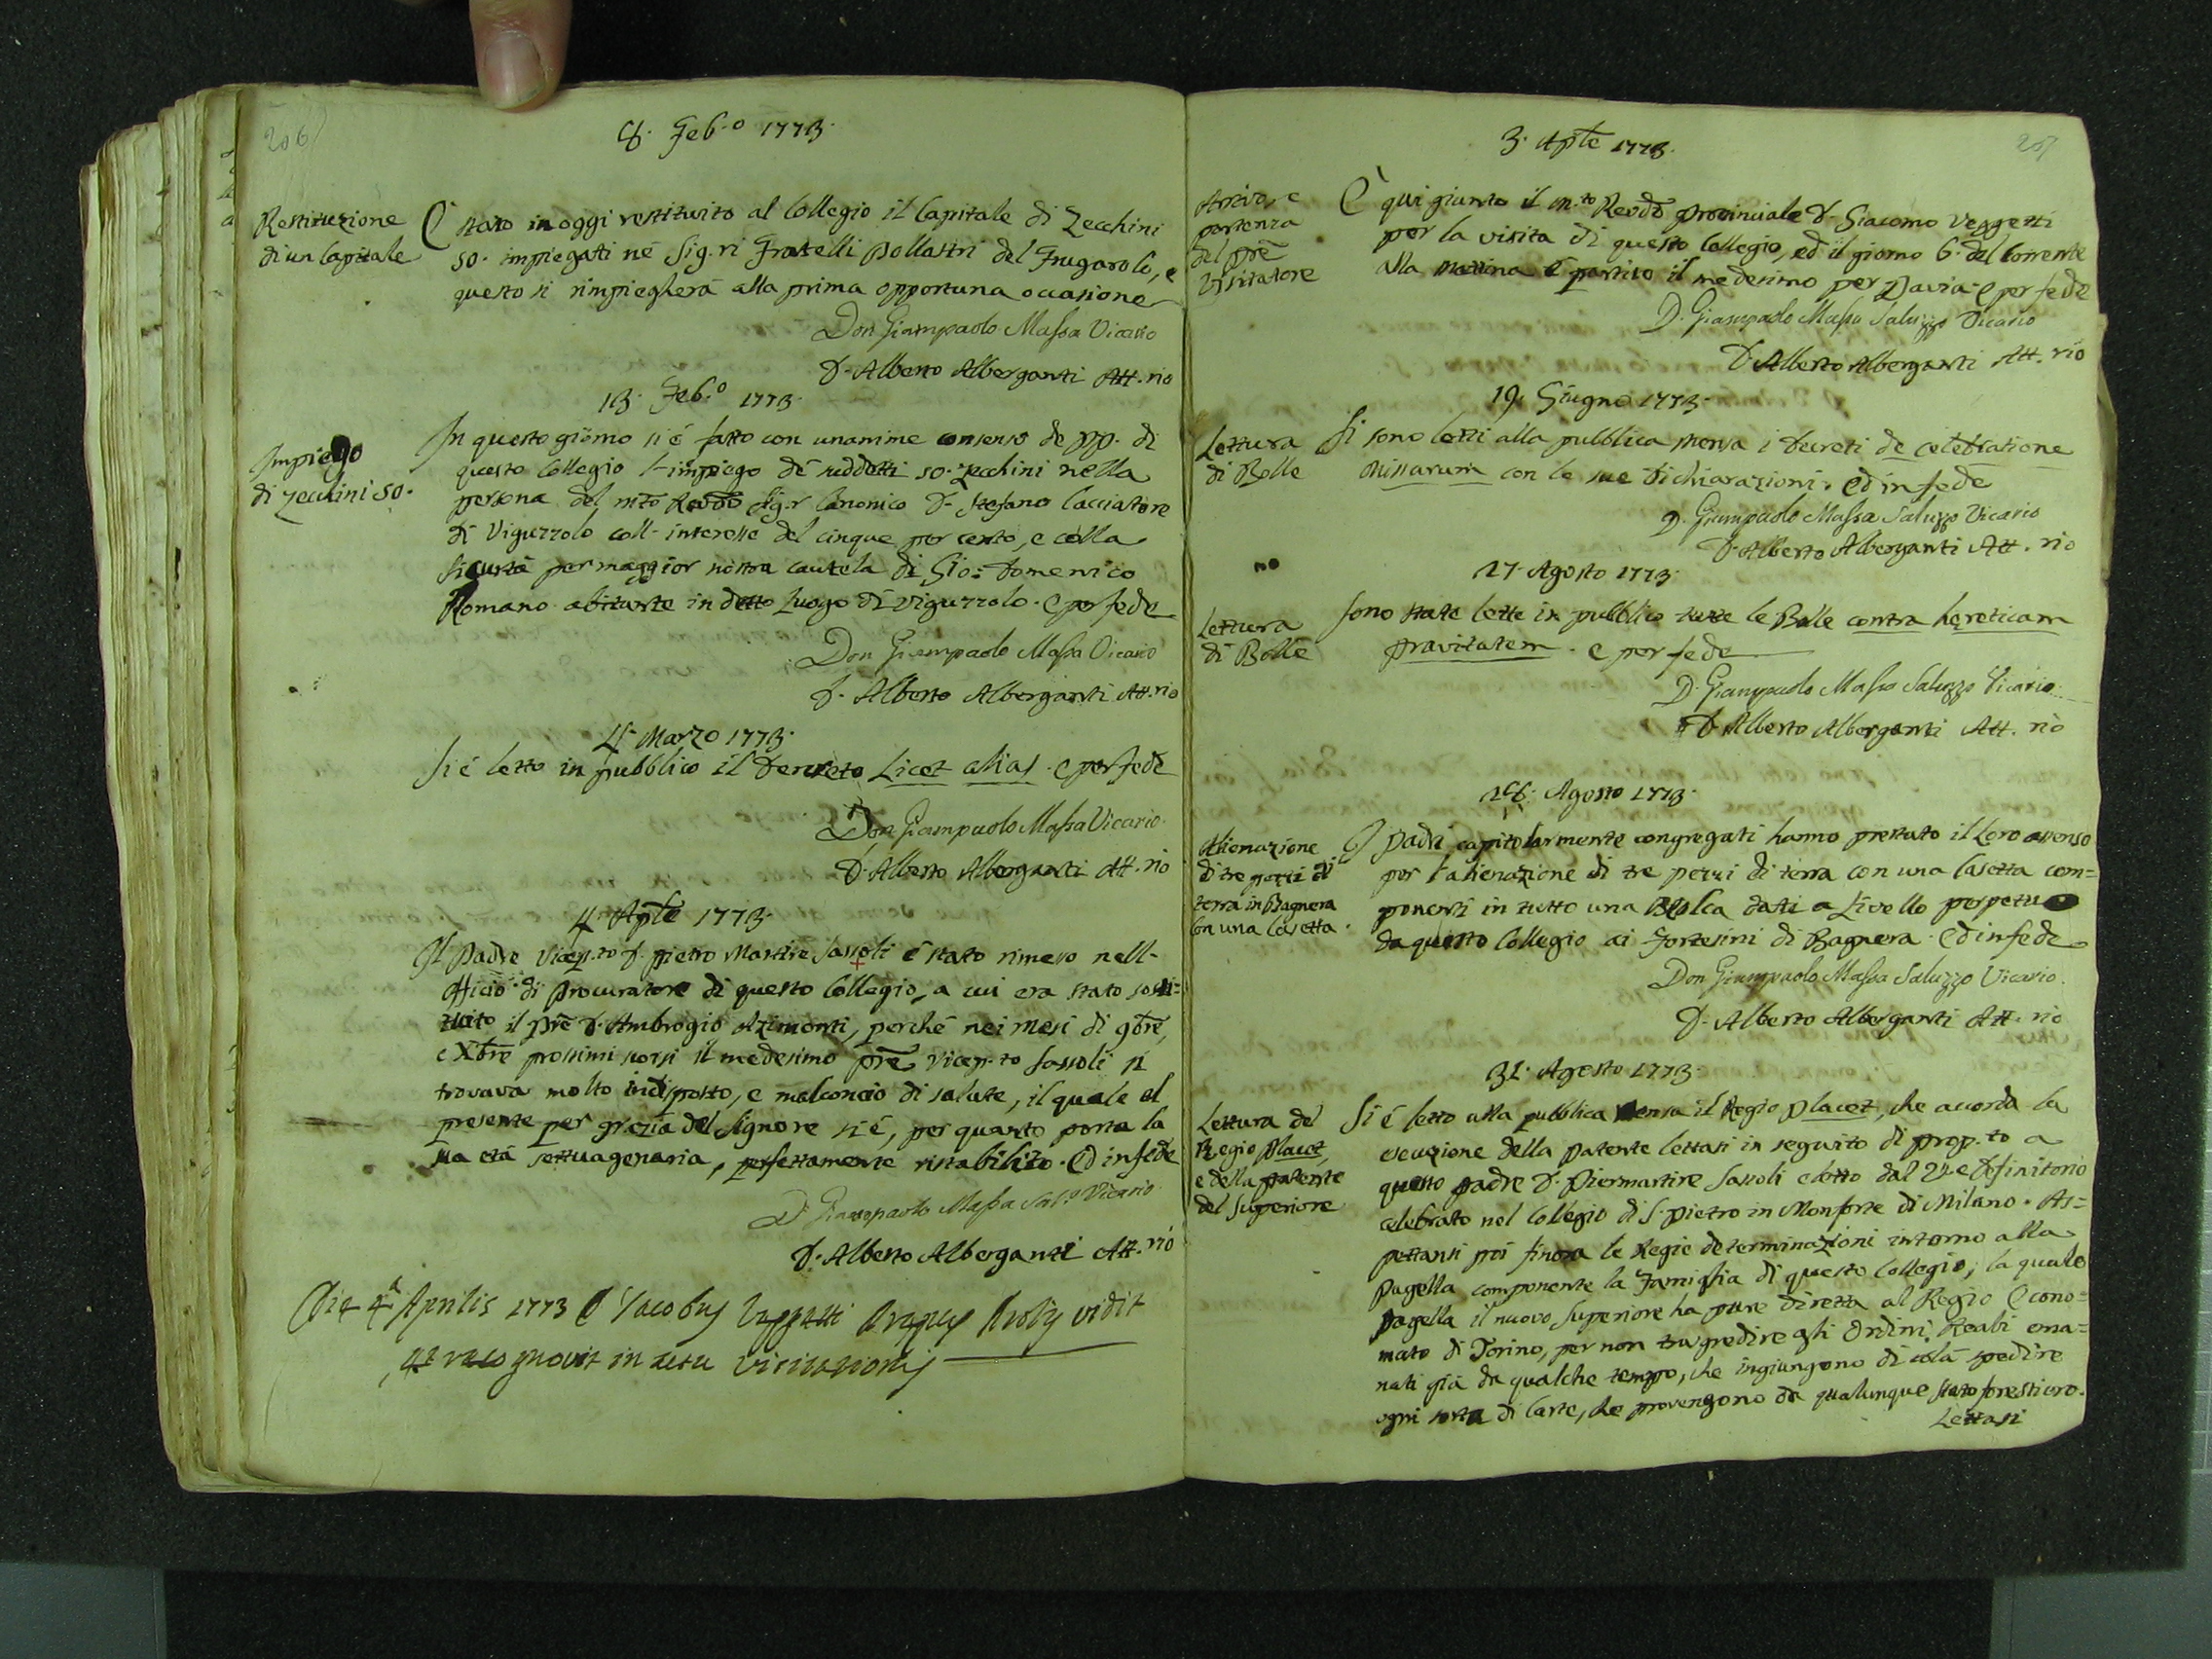 206
8. Feb.o 1773.
Restituzione
di un Capitale
È stato in oggi restituito al Collegio il Capitale di Zecchini
50. impiegati né Sig.ri Fratelli Pollastri del Frugarolo, e
questo si rimpiegherà alla prima opportuna occasione
Don Giampaolo Massa Vicario
D. Alberto Alberganti Att.rio
13. Feb.o 1773.
Impiego
di zecchini 50.
In questo giorno si é fatto con unanime consenso de PP. di
questo Collegio l'impiego dé suddetti 50. zecchini nella
persona del mto Revdo Sig.r Canonico D. Stefano Cacciatore
di Viguzzolo coll'interesse del cinque per cento, e colla
sicurtà per maggior nostra cautela di Gio: Domenico
Romano abitante in detto Luogo di Viguzzolo. e per fede
Don Giampaolo Massa Vicario
D. Alberto Alberganti Att.rio
4. Marzo 1773.
Si é letto in pubblico il Decreto Licet alias. e per fede
Don Giampaolo Massa Vicario
D. Alberto Alberganti Att.rio
4. Aple 1773.
Il Padre Vicep.to D. Pietro Martire Sassoli é stato rimesso nell'
officio di Procuratore di questo Collegio, a cui era stato sosti-
tuito il Pre D. Ambrogio Azimonti, perché nei mesi di 9bre,
e Xbre prossimi scorsi il medesimo Pre Vicep.to Sassoli si
trovava molto indisposto, e malconcio di salute, il quale al
presente per grazia del Signore si é, per quanto porta la
sua età settuagenaria, perfettamente ristabilito. Ed in fede
D. Giampaolo Massa Sal.o Vicario
D. Alberto Alberganti Att.rio
Die 4a Aprilis 1773 D Jacobus Veggetti Prapus Prolis vidit
et recognovit in actu visitationis
207
3. Aple 1773.
Arrivo, e
partenza
del Pre
Visitatore
È qui giunto il m.to Revdo Provinciale D. Giacomo Veggetti
per la visita di questo Collegio, ed il giorno 6. del corrente
alla mattina é partito il medesimo per Pavia. e per fede
D. Giampaolo Massa Saluzzo Vicario
D. Alberto Alberganti Att.rio
19. Giugno 1773.
Lettura
di Bolle
Si sono letti alla pubblica mensa i Decreti de celebratione
Missarum con le sue dichiarazioni. Ed in fede
D. Giampaolo Massa Saluzzo Vicario
D. Alberto Alberganti Att.rio
27. Agosto 1773.
Lettura
di Bolle
Sono state lette in pubblico tutte le Bolle contra hereticam
pravitatem. e per fede
D. Giampaolo Massa Saluzzo Vicario
D. Alberto Alberganti Att.rio
28. Agosto 1773.
Alienazione
di tre pezzi di
terra in Bagnera
con una Casetta.
I Padri capitolarmente congregati hanno prestato il loro assenso
per l'alienazione di tre pezzi di terra con una Casetta com=
ponenti in tutto una Biolca dati a Livello perpetuo
da questo Collegio ai Fortesini di Bagnera. Ed in fede
Don Giampaolo Massa Saluzzo Vicario.
D. Alberto Alberganti Att.rio
31. Agosto 1773.
Lettura del
Regio Placet,
e della patente
del Superiore
Si é letto alla pubblica Mensa il Regio Placet, che accorda la
esecuzione della Patente lettasi in seguito di Prop.to a
questo Padre D. Piermartire Sassoli eletto dal Definitorio
celebrato nel Collegio di S. Pietro in Monforte di Milano. As=
pettansi poi finora le Regie determinazioni intorno alla
Pagella componente la Famiglia di questo Collegio; la quale
Pagella il nuovo Superiore ha pure diretta al Regio Econo=
mato di Torino, per non trasgredire agli Ordini Reali ema=
nati già da qualche tempo, che ingiungono di colà spedire
ogni sorta di Carte, che provengono da qualunque stato forestiero.
Lettasi